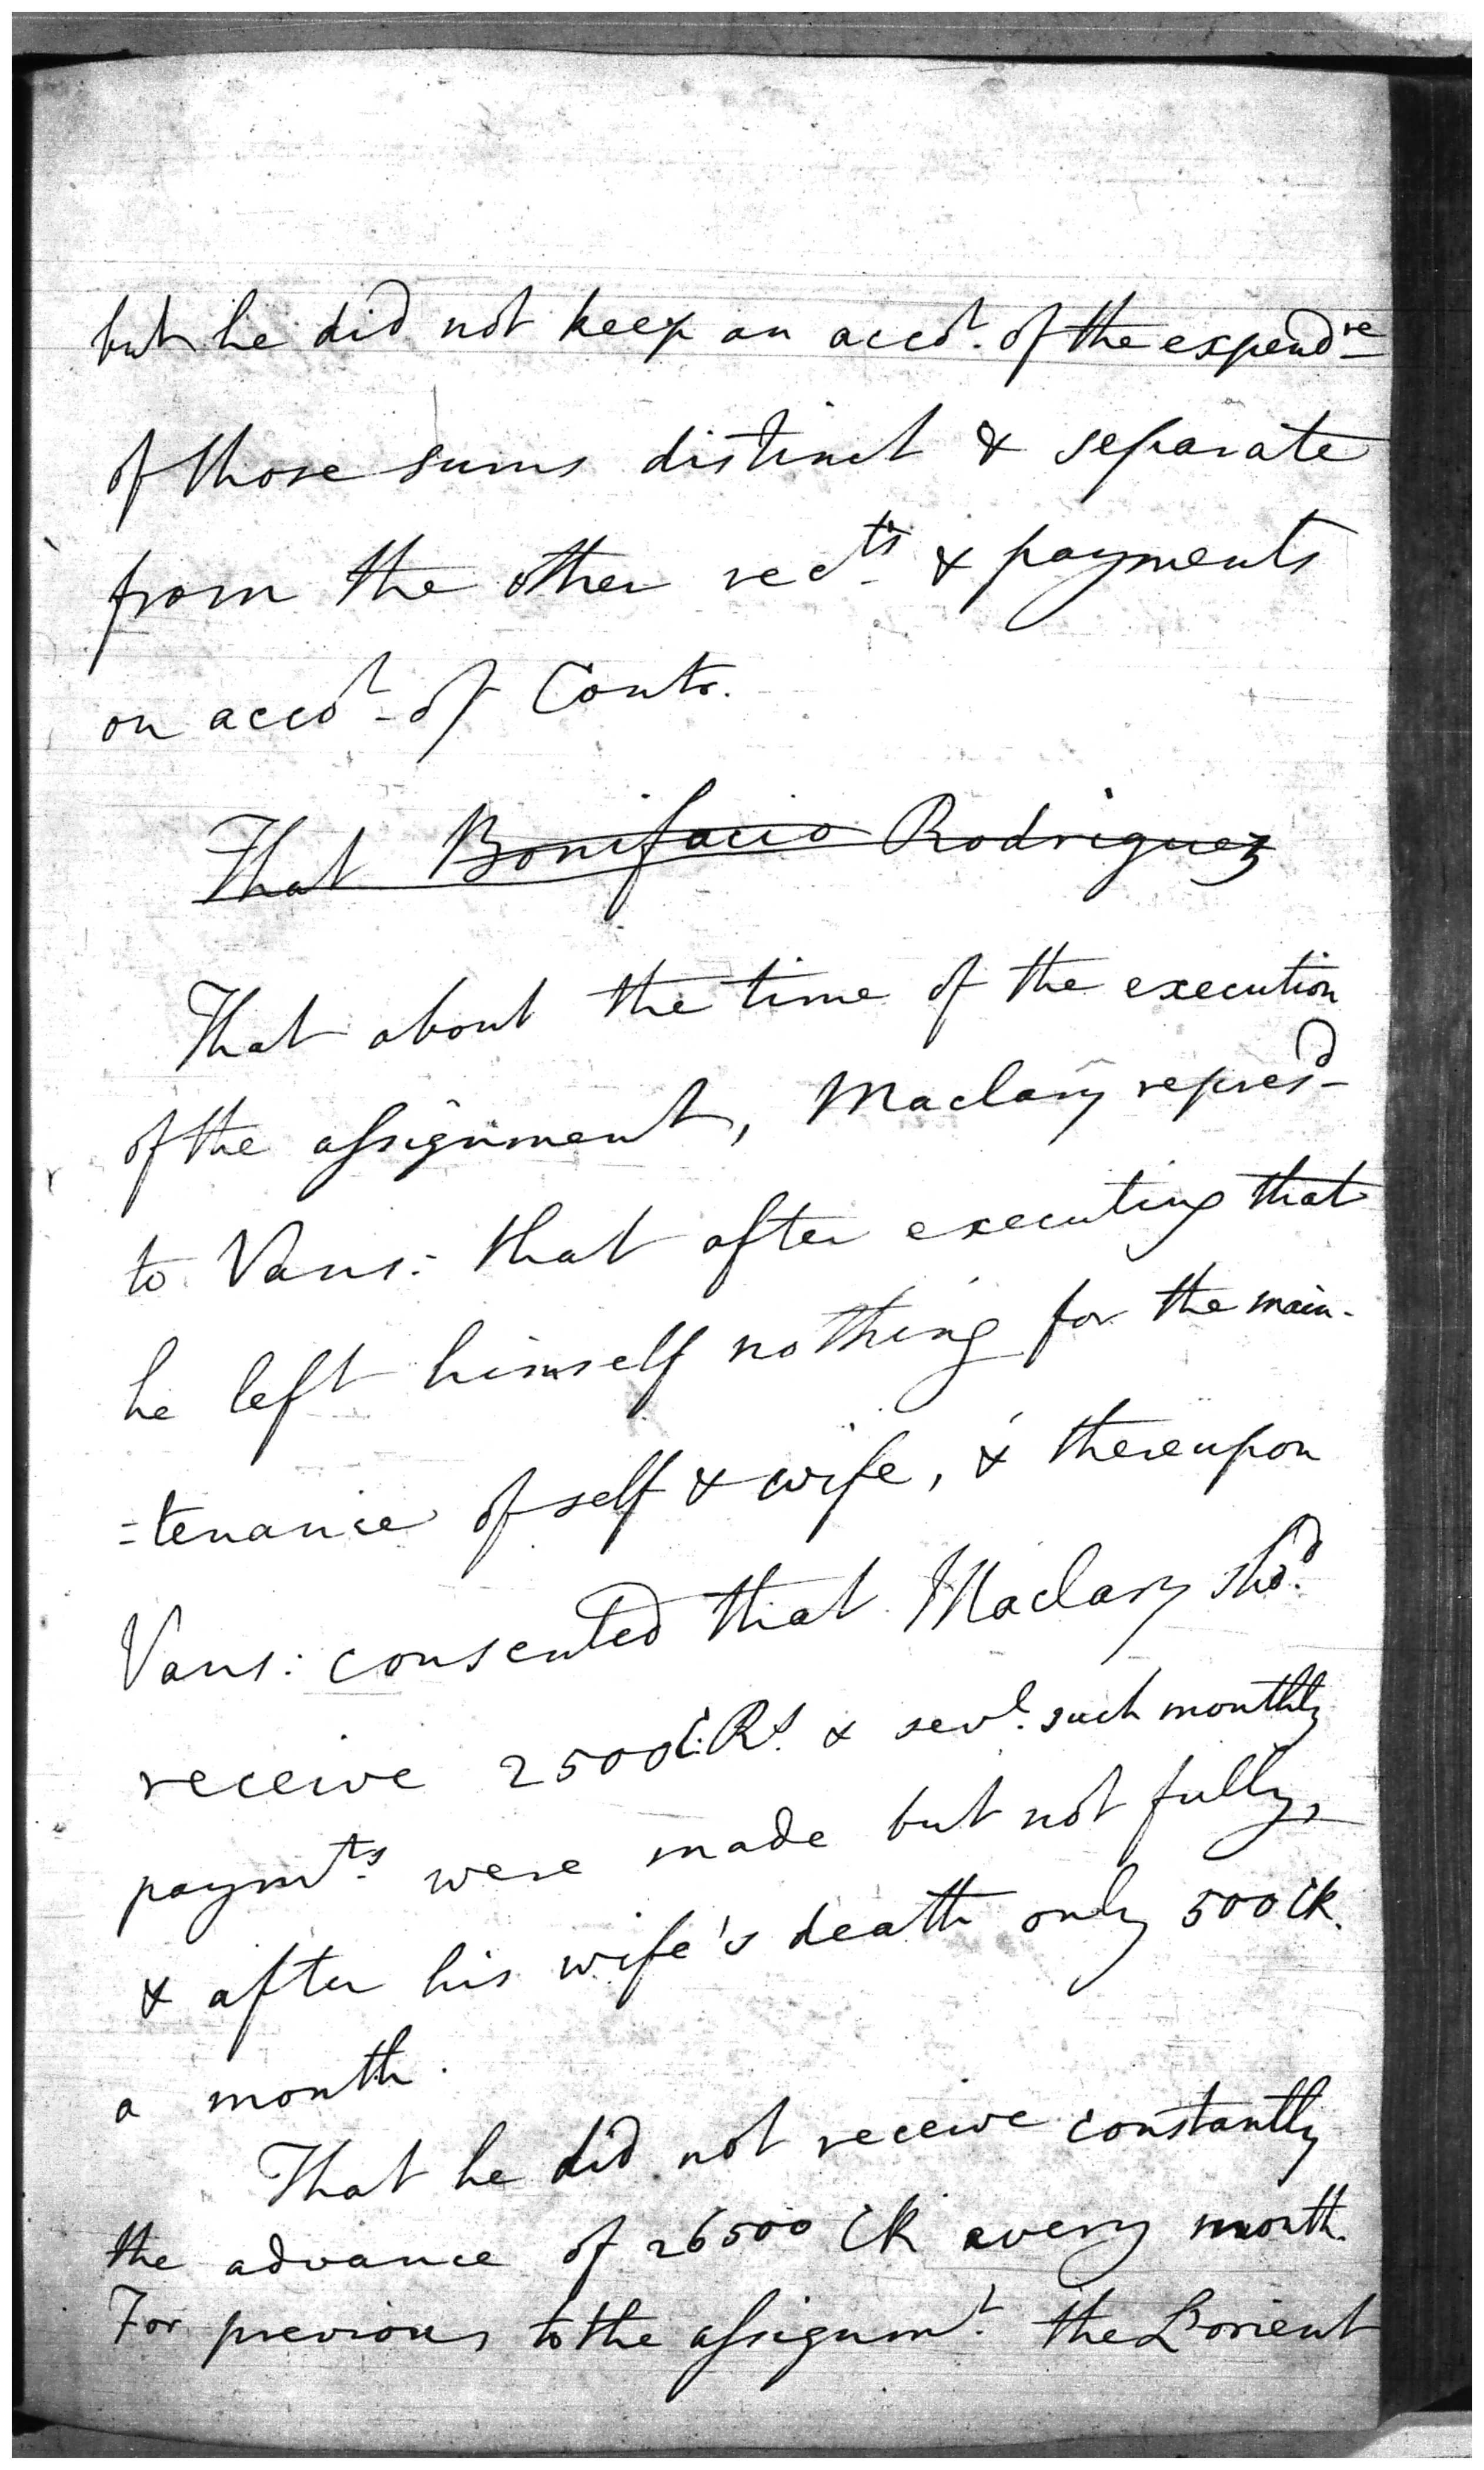 but he did not keep an accot. of the expendre
of those sums distinct & separate
from the other recots & payments
on accot. of Contr.
That Bonifacio Rodriguez
That about the time of the execution
of the assignment, Maclary represd
to Vans: that after executing that
he left himself nothing for the main-
=tenance of self & wife, & thereupon
Vans: consented that Maclary shod.
receive 2500 C:Rs. & sevl. such monthly
paymts. were made but not fully,
& after his wife's death only 500 CR.
a month.
That he did not receive constantly
the advance of 26500 CR every month.
For previous to the assignmt. the L'orient